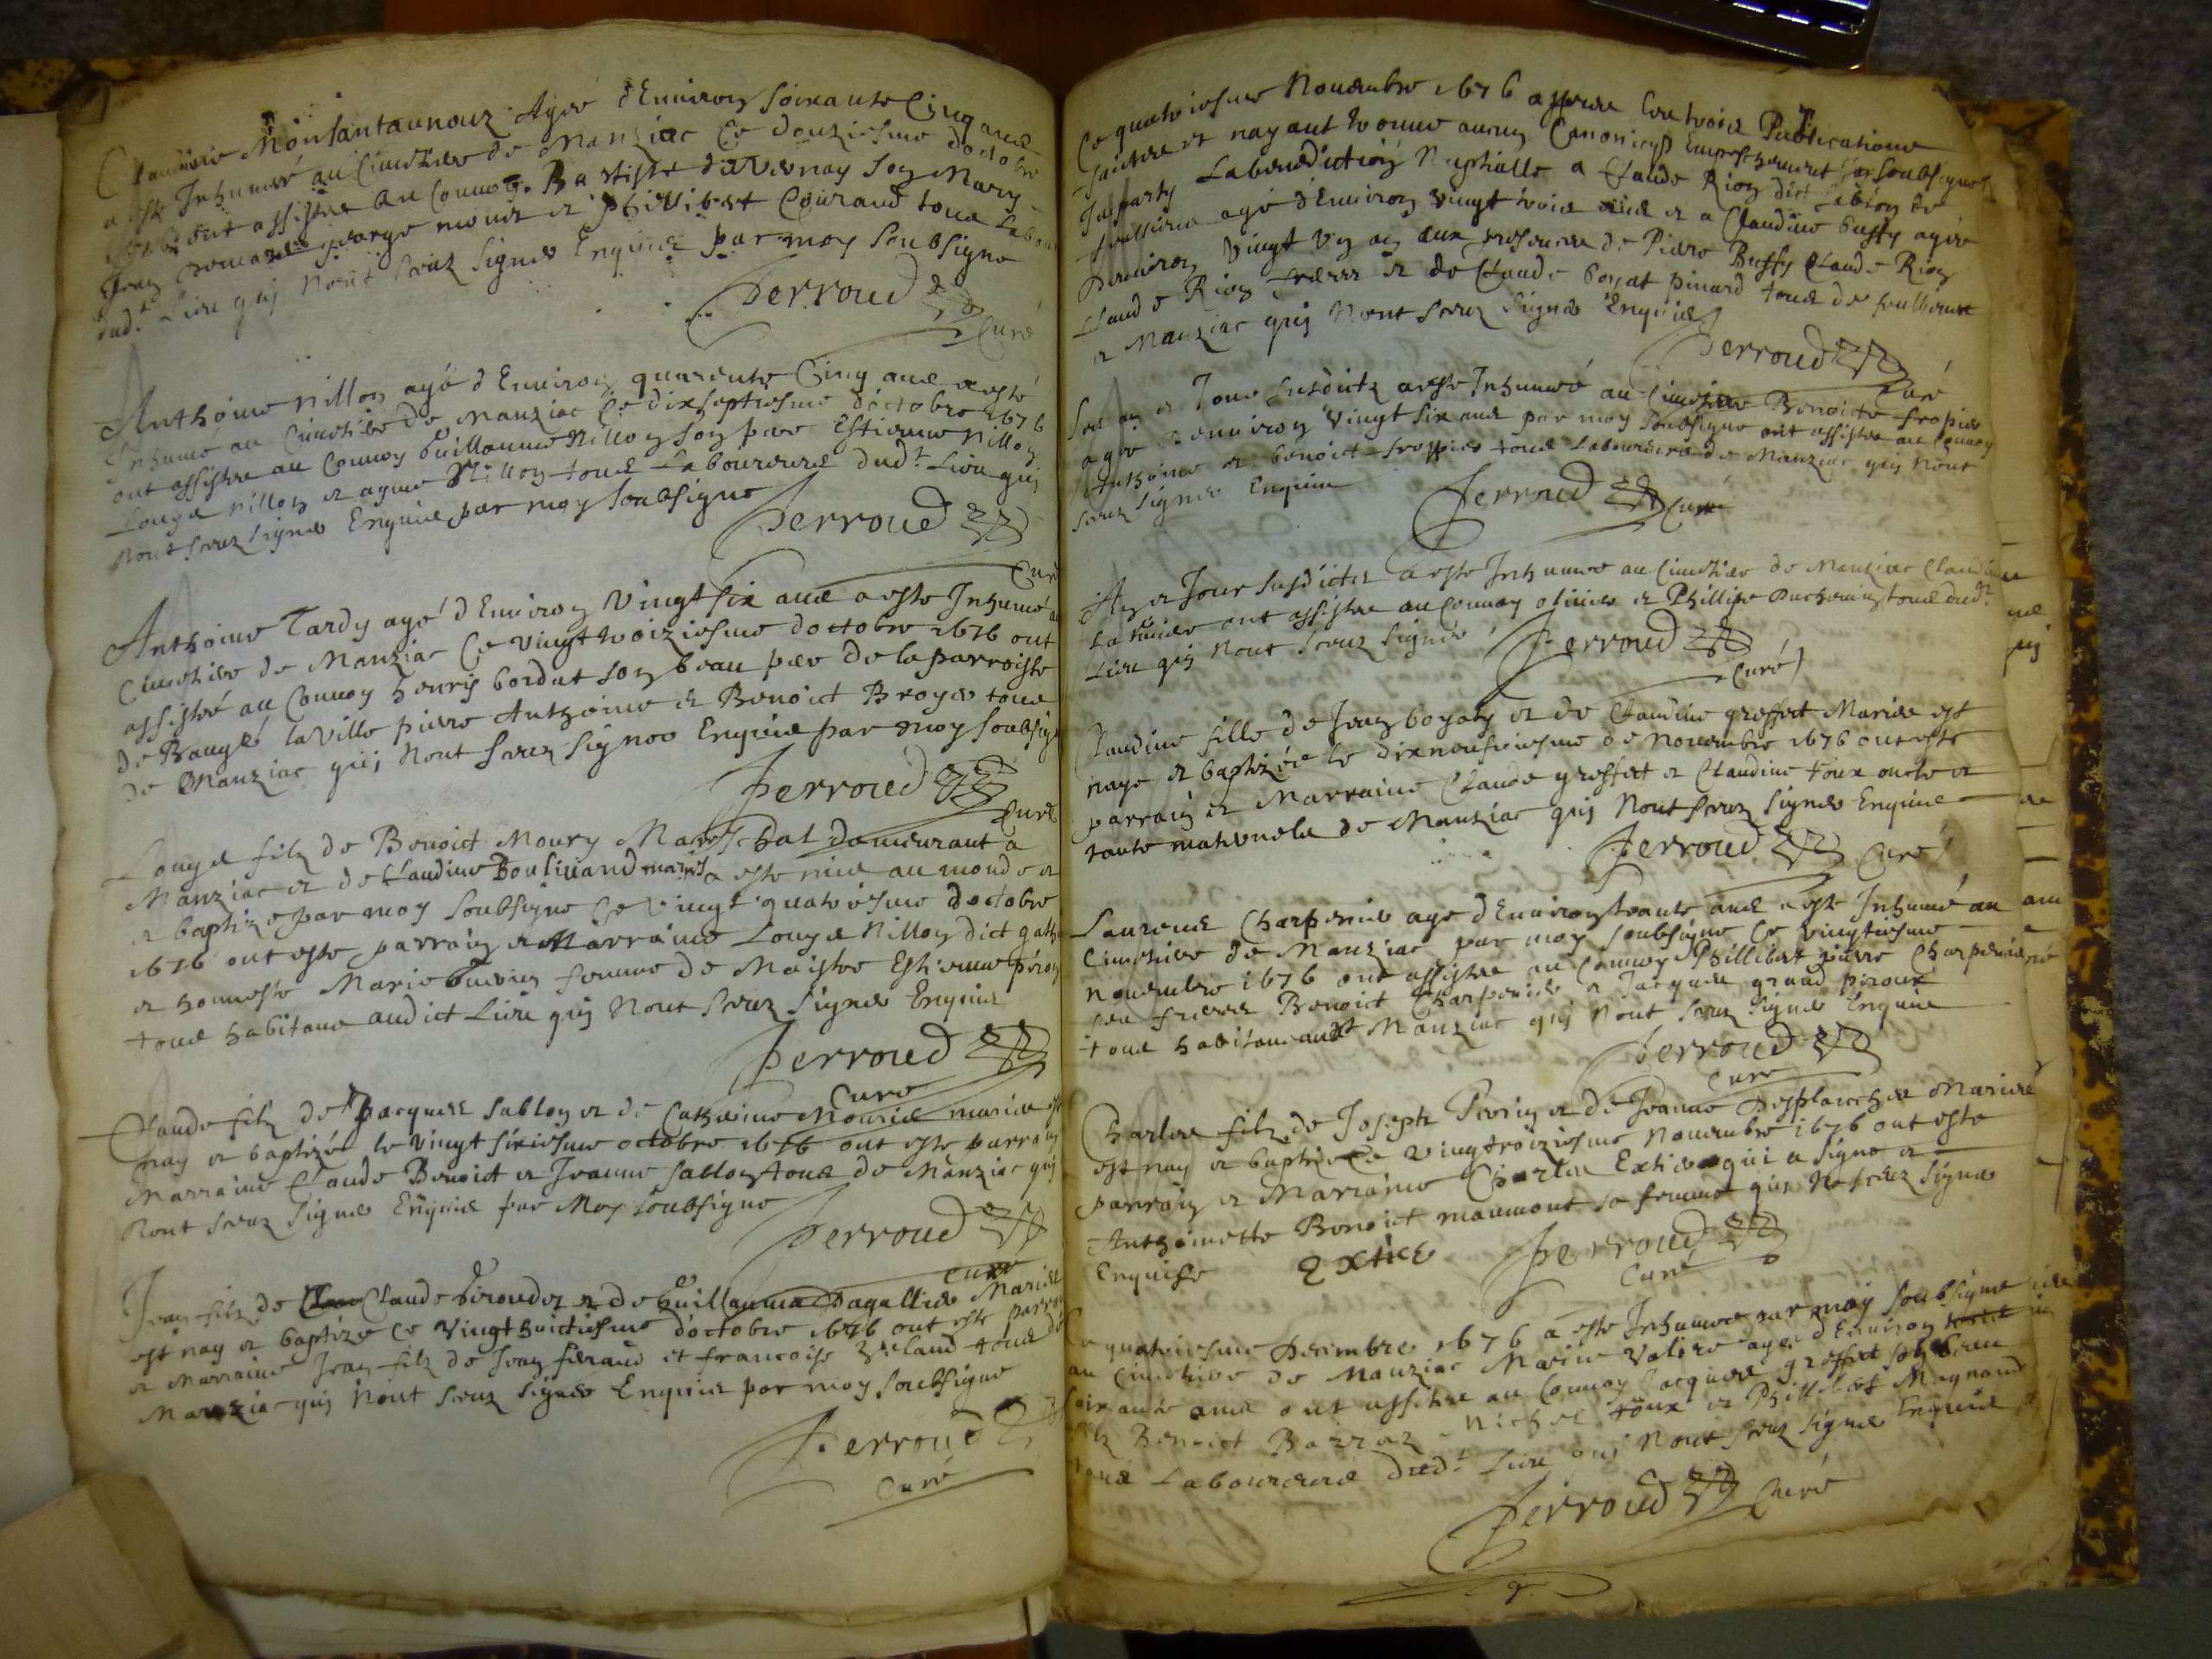 Claudine Montantaunouz Agée d'Environ soixante Cinq ans
a este Inhumée au Cimetiere de Manziac Ce douziesme doctobre
ont assistes au Convoy Baptiste duvernay Son Mary
Jean george mouris et phillibert Couraud tous Labour
dud.t Lieu quj nont sceuz signer Enquis par moy soubsigne
Perroud
Curé
Anthoine nillon agé d Environ quarente Cinq ans a esté
Inhumé au Cimetiere de Manziac Ce dixseptiesme doctobre 1676
ont assistes au Convoy Guillaume Nillon son pere Estienne Nillon
Louys nillon et ayme Nillon tous Laboureurs dud.t Lieu quj
nont sceuz signer Enquis par moy soubsigne
Perroud
Curé
Anthoine Tardy agé d Environ Vingt six ans a este Inhumé au
Cimetiere de Manziac Ce vingt troiziesme doctobre 1676 ont
assisté au Convoy henrij bordat son beau pere de la parroisse
de Baugé la ville pierre Anthoine et Benoict Broyer tous
de Manziac quij Nont sceuz signer Enquis par moy soubsigne
Perroud
Curé
Louys filz de Benoict Moury Mareschal demeurant a
Manziac et de Claudine Boulivand mariés a este mis au monde et
et baptize par moy soubsigne Ce vingt quatriesme doctobre
1676 ont este parrain et Marraine Louys Nillon dict
et honneste Marie femme de Maistre Estienne
tous habitans audict Lieu quj Nont sceuz signer Enquis
Perroud
Curé
Claude filz de Jacques sablon et de Catherine Mouris maries est
nay et baptizé le Vingt sixiesme octobre 1676 ont este parrain
Marraine Claude Benoict et Jeanne sablon tous de Manziac quj
Nont sceuz signer Enquis par Moy soubsigne
Perroud
Curé
Jean filz de Claude et de Guillauma dagallier Maries
est nay et baptize Ce vingt huictiesme d'octobre 1676 ont este parrain
et Marraine Jean filz de Jean feraud et francoise tous de
Manziac quj Nont sceuz signer Enquis par moy soubsigne
Perroud
Curé
Ce quatriesme Novembre 1676 appres les trois Publications
faictes et nayant trouve aucun Canonicq Empeschement Je soubsigne
Jaj party La benediction Nuptialle a Claude Rion dict Lablon de
feulliens agé d Environ vingt trois ans et a Claudine buffy agée
Denviron vingt un an aux presences de Pierre Buffy Claude Rion
Claude Rion freres et de Claude boyat pinard tous de feulliens
et Manziac quj Nont sceuz signer Enquis
Perroud
Curé
Les an et Jour susdictz a este Inhumé au Cimetiere Benoiste fropier
agee Denviron Vingt six ans par moy soubsigne ont assistes au Convoy
Anthoine et benoict froppier tous Laboureurs de Manziac quj Nont
sceuz signer Enquis
Perroud
Curé
An et Jour susdictes a este Inhumee au Cimetiere de Manziac Claudine
ont assistes au Convoy olivier et Phillipe tous dud.t
Lieu quj Nont sceuz signer
Perroud
Curé
Claudine fille de Jean boyat et de Claudine greffet Maries est
naye et baptizée le dixneufviesme de Novembre 1676 ont este
parrain et Marraine Claude greffet et Claudine toux oncle et
tante maternels de Manziac quj Nont sceuz signer Enquis
Perroud
Curé
Laurens Charpenier age d Environ trante ans a este Inhumé au
Cimetiere de Manziac par moy soubsigne Ce vingtiesme
Novembre 1676 ont assistes au Convoy Phillibert pierre Charpenier
ses freres Benoict Charpenier et Jacques grand piroux
tous habitans aud.t Manziac quj Nont sceuz signer Enquis
Perroud
Curé
Charles filz de Joseph et de Jeanne Desplanches Maries
est nay et baptize Ce vingtroiziesme Novembre 1676 ont este
parrain et Marraine Charles Extier qui a signe et
Anthoinette Benoict maumont sa femme quj Na sceuz signer
Enquise
Extier
Perroud
Curé
Ce quatriesme Decembre 1676 a este Inhumee par moy soubsigne
au Cimetiere de Manziac Marie Valere agee d Environ
soixante ans ont assistes au Convoy Jacques greffet son
filz Benoict Barraz Michel toux et Phillibert Magnand
tous Laboureurs dud.t Lieu qui Nont sceuz signer Enquis
Perroud
Curé